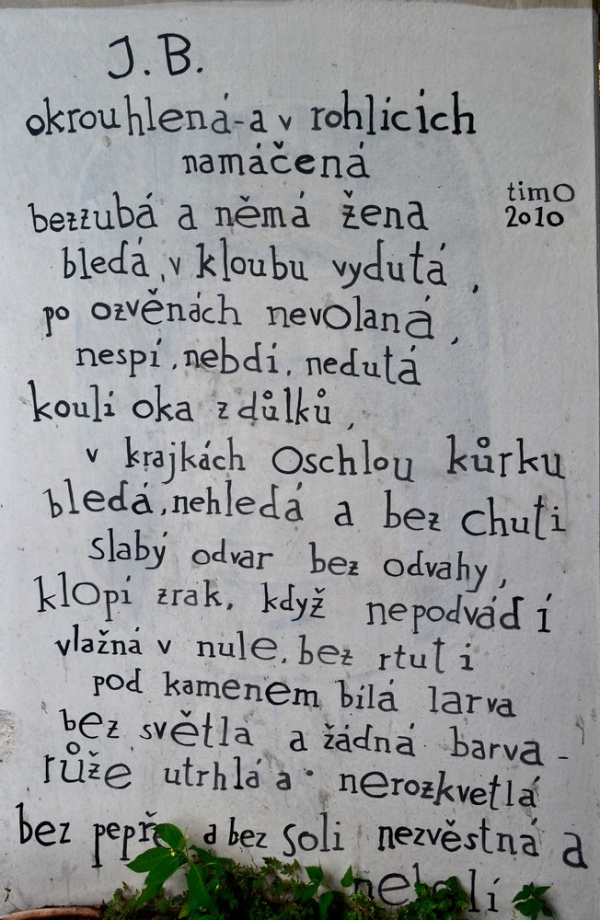 J.B.
okrouhlená-a v rohlících
namáčená
timO
2010
bezzubá a němá žena
bledá, v kloubu vydutá,
po ozvěnách nevolaná,
nespí, nebdí, nedutá
koulí oka z důlků,
v krajkách Oschlou kůrku
bledá, nehledá a bez chuti
slabý odvar bez odvahy,
klopí zrak, když nepodvádí
vlažná v nule, bez rtuti
pod kamenem bílá larva
bez světla a žádná barva -
růže utrhlá a nerozkvetlá
bez pepře a bez soli nezvěstná a